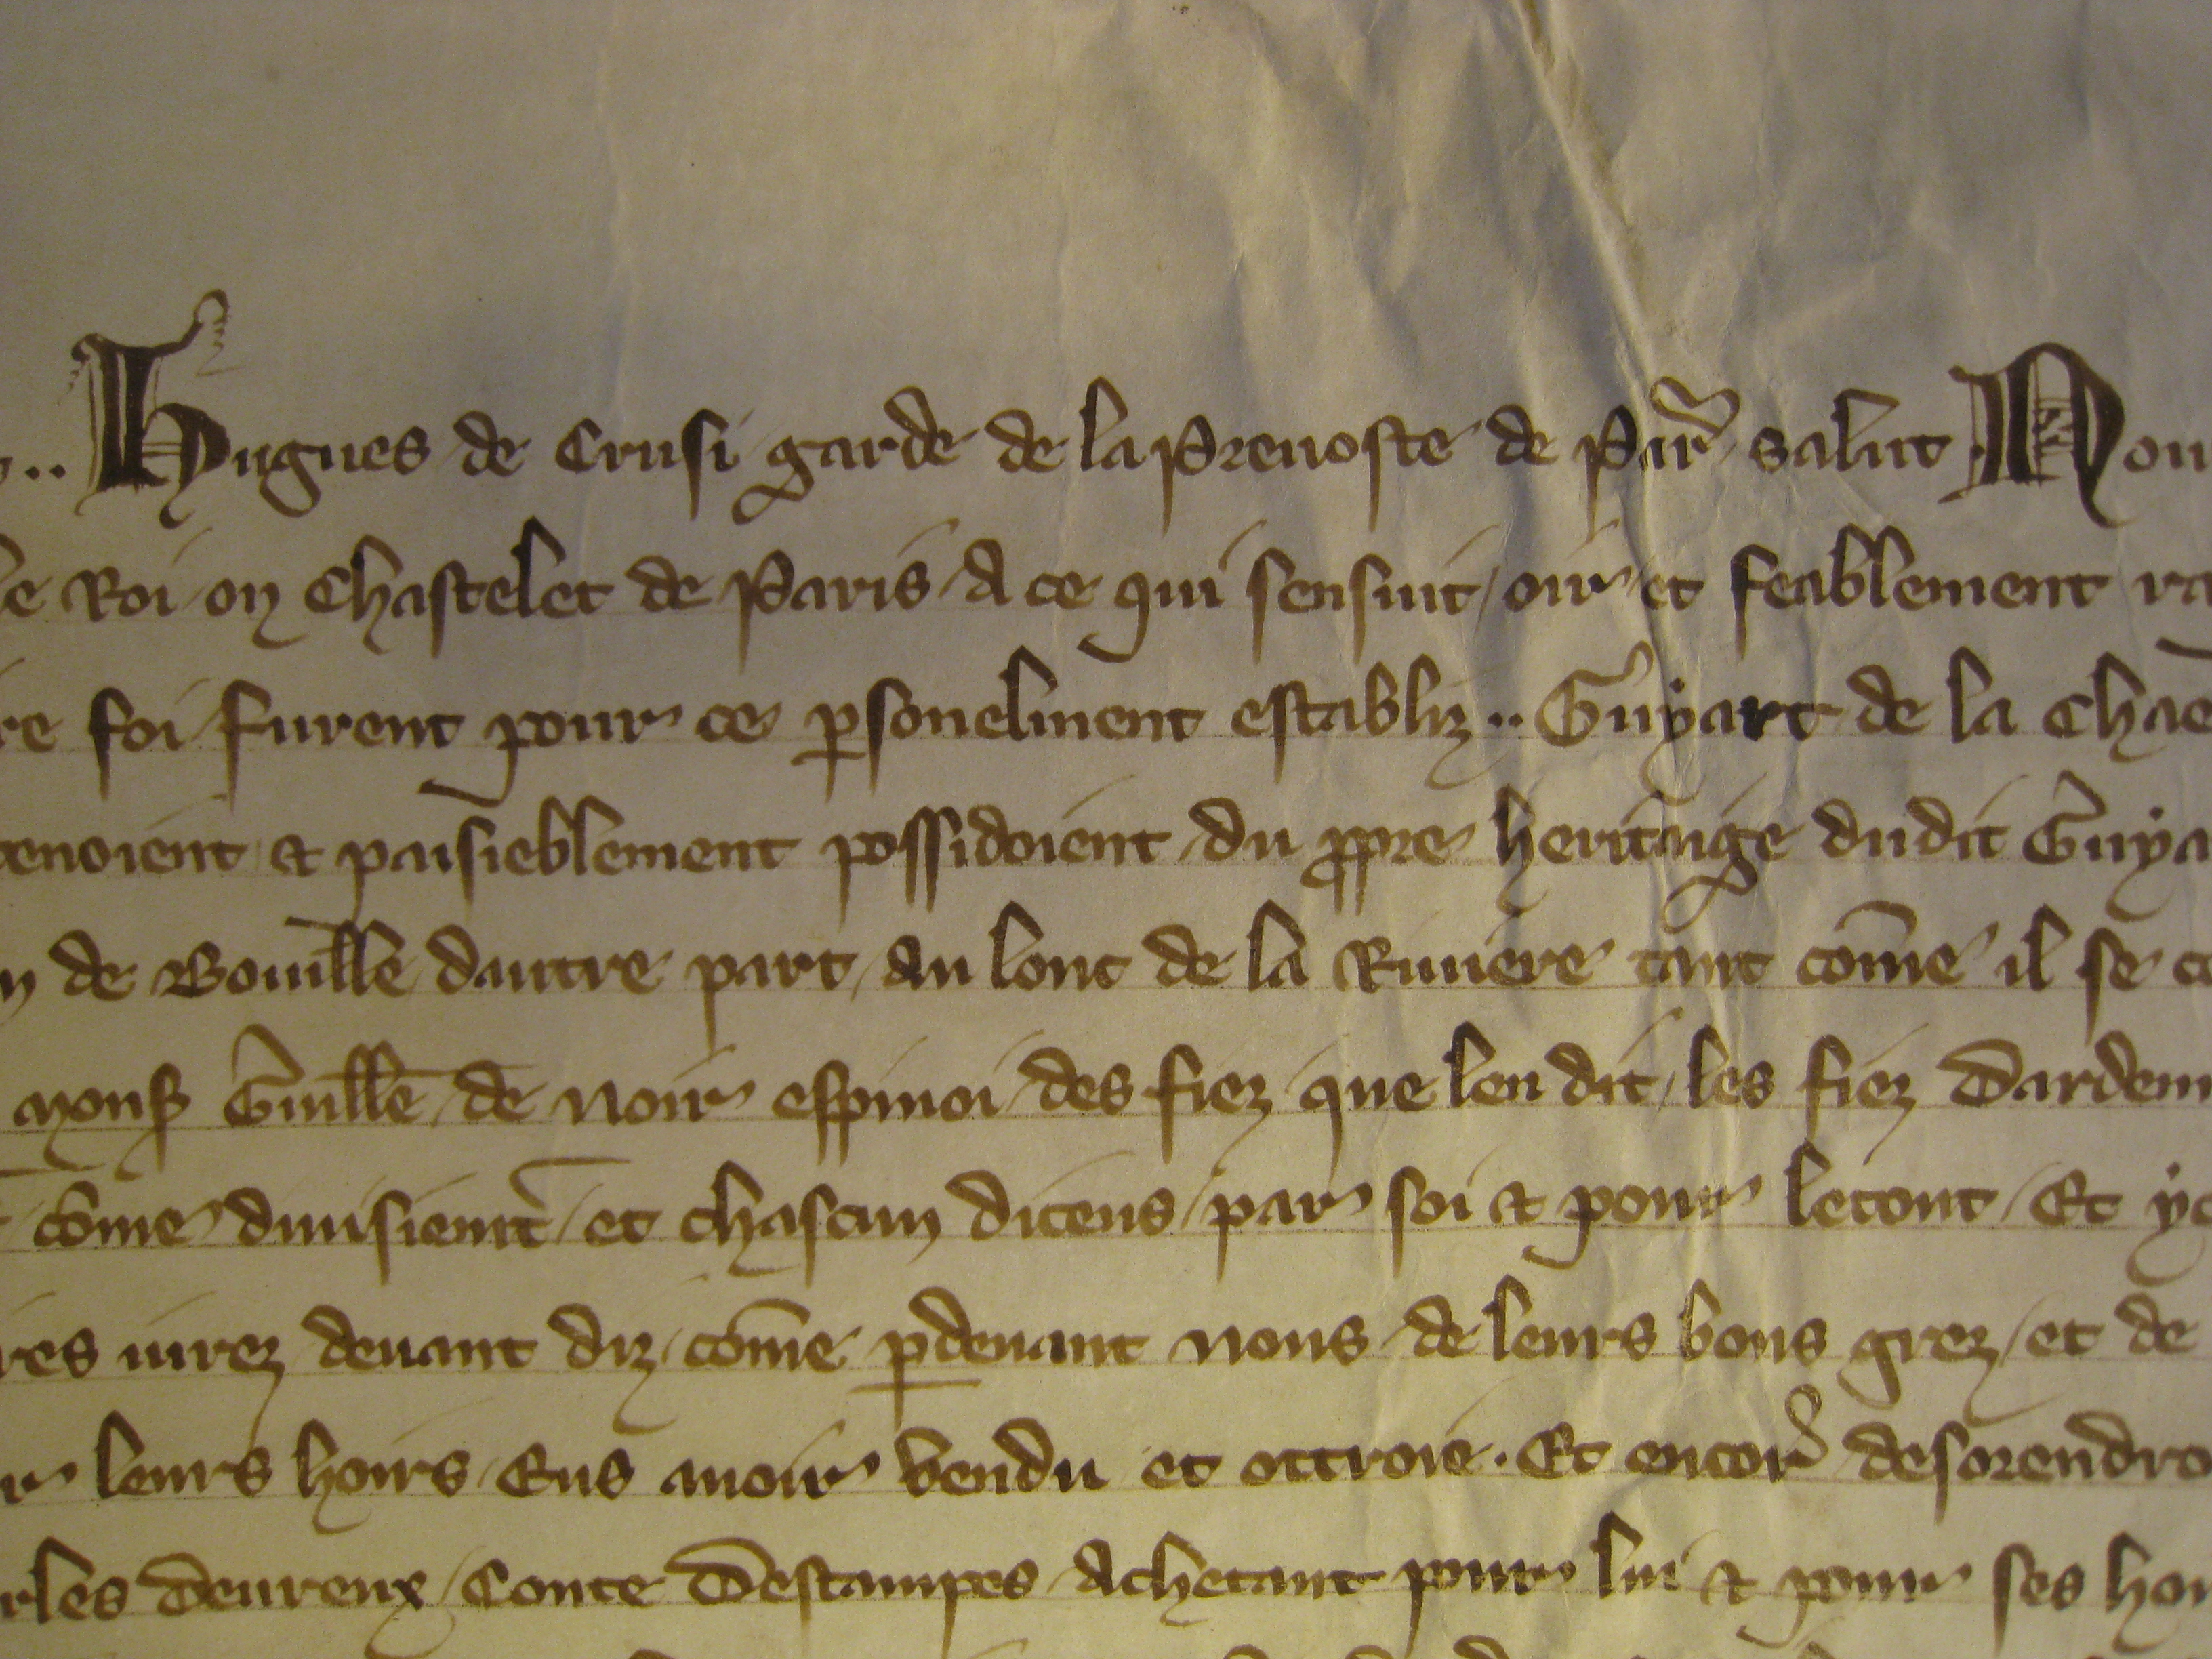 .. Hugues de Crusi garde de la Prevoste de Par̃ salut Nou
le Roi ou Chastelet de Paris A ce qui sensuit oir et feablement ra
re foi furent pour ce ꝑsonelment establiz .. Guyart de la Chae
tenoient & paisieblement possidoient du ꝓpre heritaige dudit Guya
de Bouuille dautre part au lonc de la Riuiere tant com̃e il se co
mons̃ Guill̃e de Noir espinoi des fiez que len dit les fiez Dardenn
com̃e diuisiem̃t et chascun diceus par soi & pour letout Et yc
res iurez deuant diz com̃e ꝑdeuant nous de leurs bons grez et de
r leurs hoirs Eus auoir vendu et ottroie . Et encor̃ desorendro
rles Deureux Conte Destampes Achetant pour lui & pour ses hoi